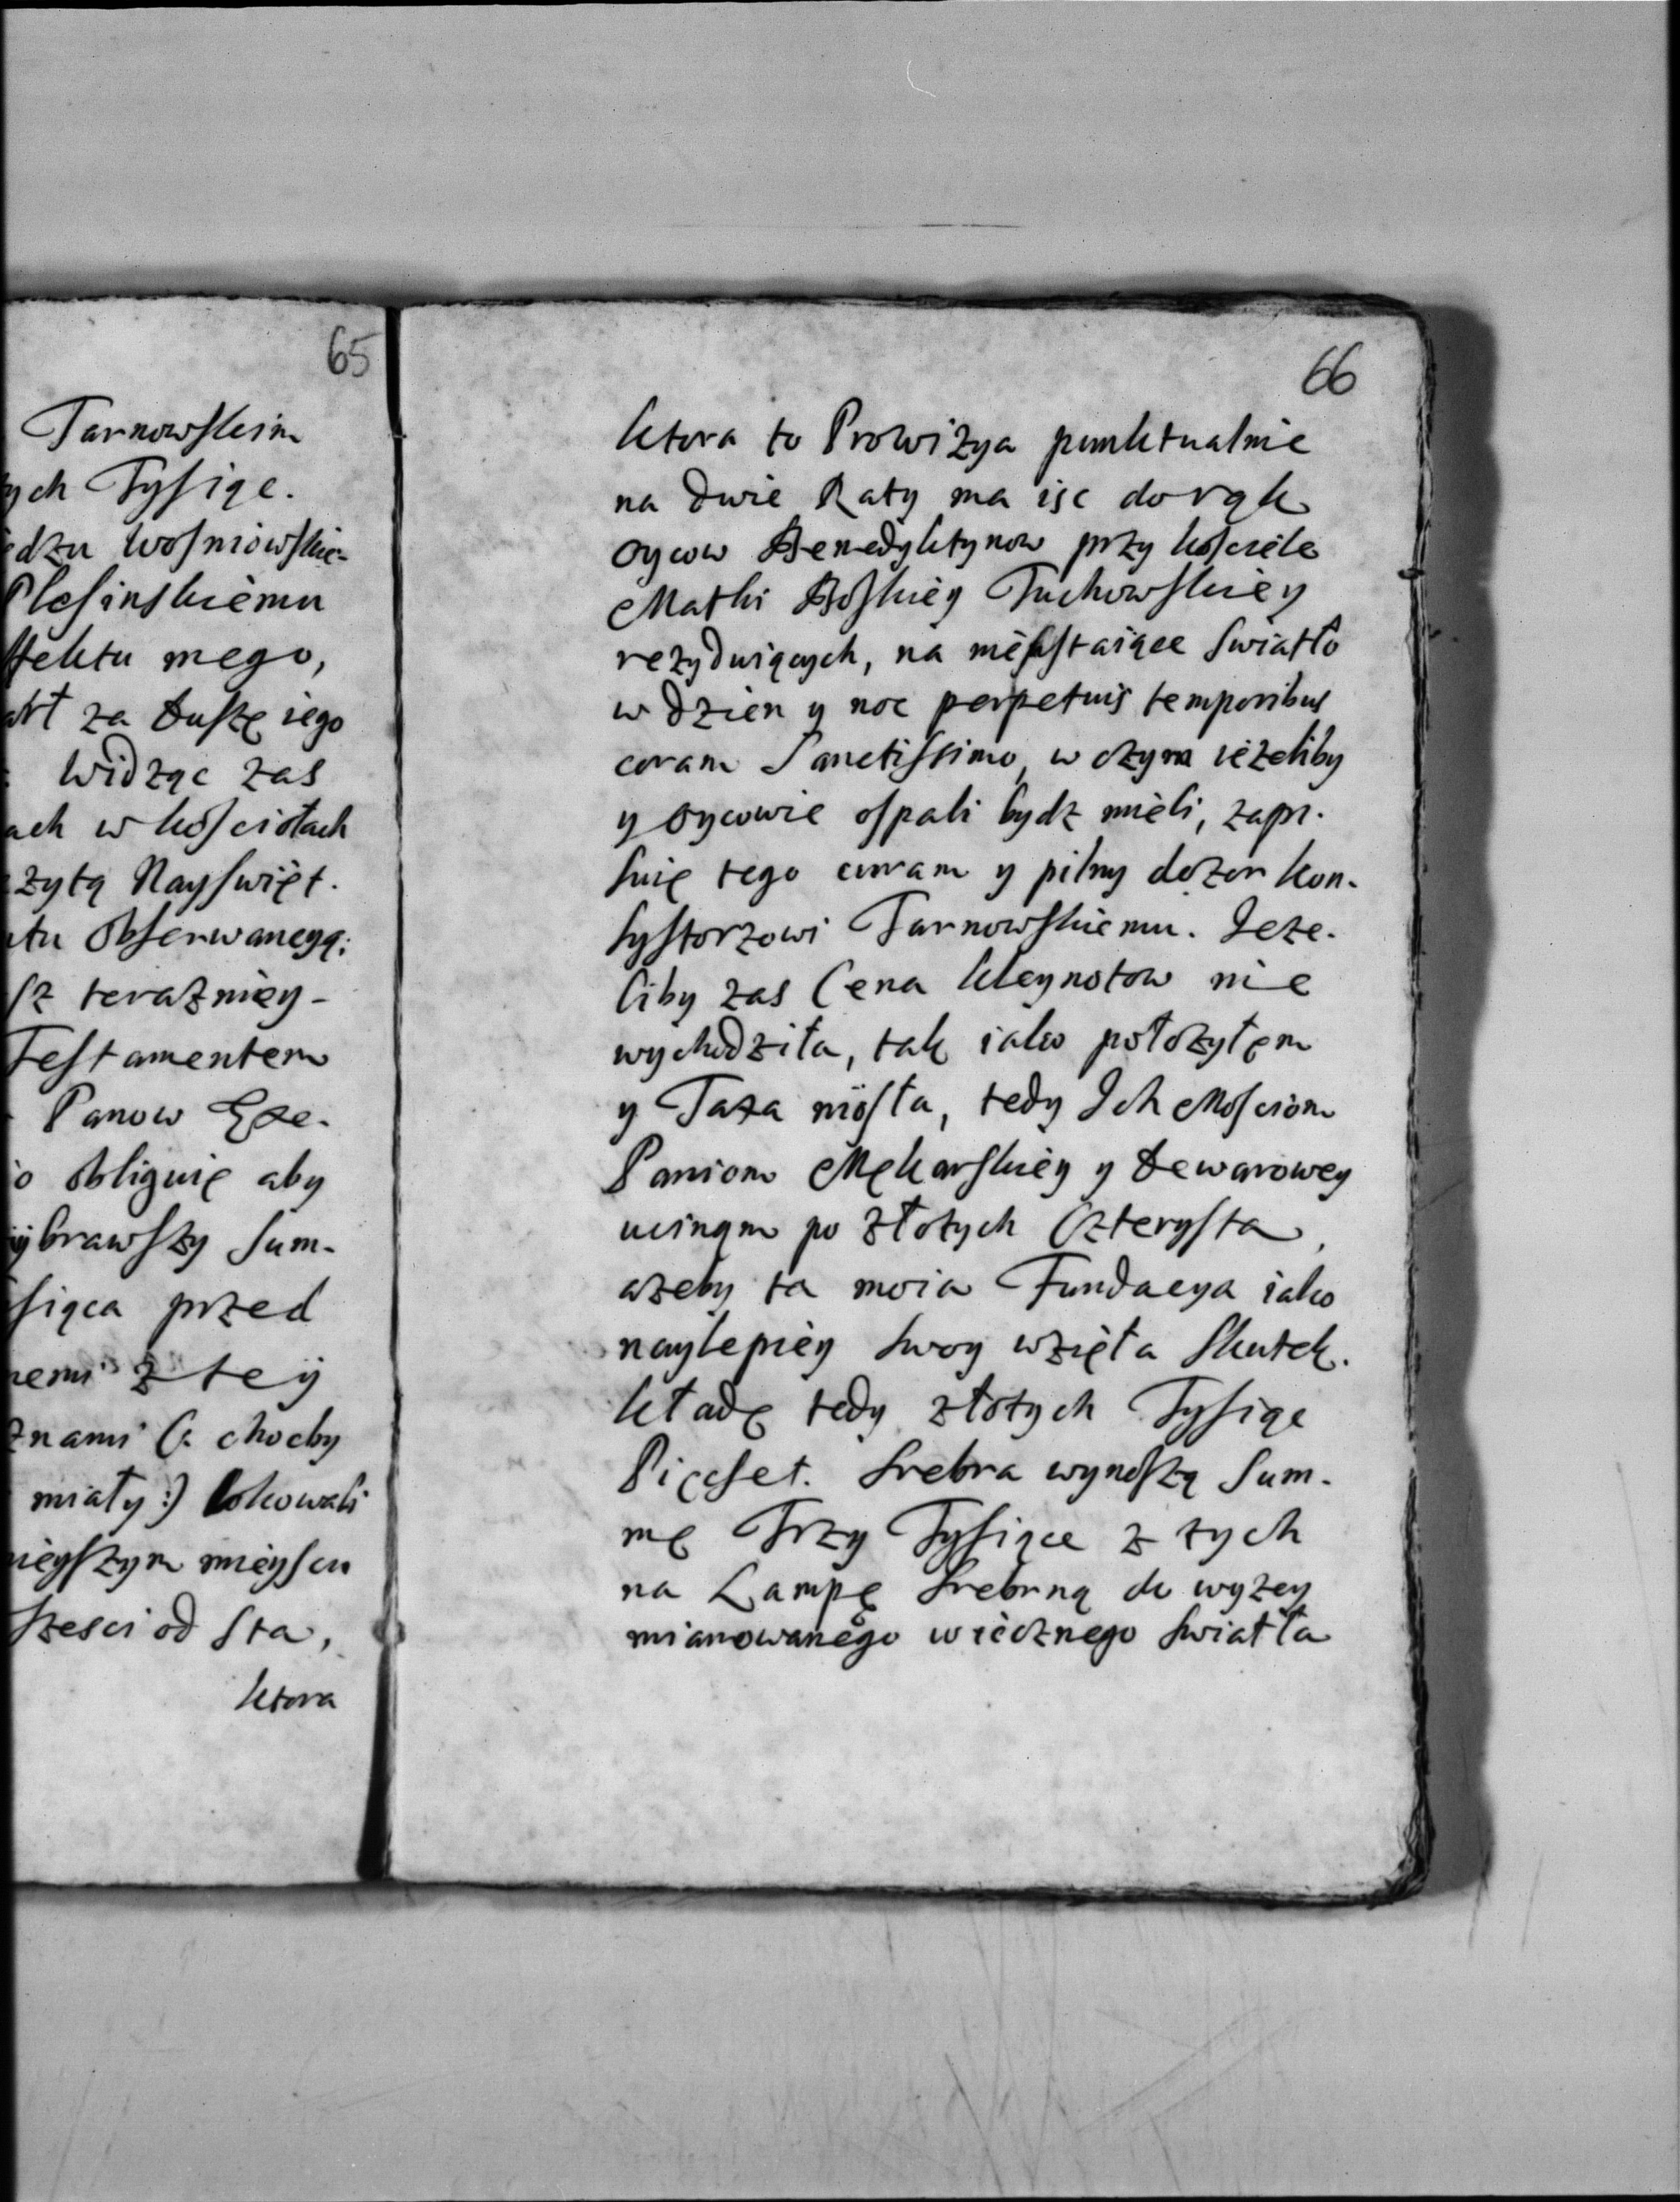 65
Tarnowskim
ych Tysiąc.
edzu Wosniowskie-
Plesinskiemu
ffektu mego,
arł za Duszę iego
Widząc zas
ach w kosciołach
zytą Nayswięt.
tu Obserwancyą;
sz teraznięy-
Testamentem
Panow Exe-
o obliguię aby
ybrawszy Sum-
siąca przed
nemi z tey
znami (: chocby
miały:) lokowali
nieyszym mieyscu
szesci od sta,
ktora
66
ktora to Prowizya punktualnie
na dwie Raty ma isc do rąk
Oycow Benedyktynow przy kosciele
Matki Boskiey Tuchowskiey
rezyduiących, na nieustaiące swiatło
w dzien y noc perpetuis temporibus
coram Sanctissimo, w czym iezeliby
y Oycowie ospali bydz mieli, zapi-
suię tego curam y pilny dozor kon-
systorzowi Tarnowskiemu. Jeze-
liby zas Cena kleynotow nie
wychodziła, tak iako połozyłem
y Taxa niosła, tedy Ich Mosciom
Paniom Mękarskiey y Dewarowey
ucinam po złotych Czterysta,
azeby ta moia Fundacya iako
naylepiey swoy wzięła skutek.
kładę tedy złotych Tysiąc
Pięcset. Srebra wynoszą Sum-
mę Trzy Tysiące z tych
na Lampę srebrną do wyzey
mianowanego wiecznego swiatła